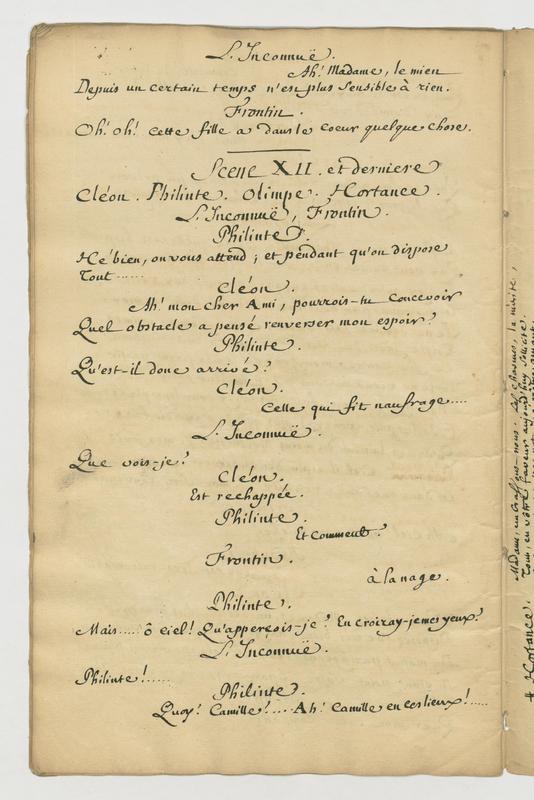 L'Inconnuë.
Ah! Madame, le mien
Depuis un certain temps n'est plus sensible à rien.
Frontin.
Oh! oh! cette fille a dans le coeur quelque chose.
Scene XII. et derniere
Cléon. Philinte. Olimpe. Hortance.
L'Inconnuë, Frontin.
Philinte.
Hé bien, on vous attend; et pendant qu'on dispose
Tout......
Cléon.
Ah! mon cher Ami, pourrois-tu concevoir
Quel obstacle a pensé renverser mon espoir?
Philinte.
Qu'est-il donc arrivé?
Cléon.
Celle qui fit naufrage....
L'Inconnuë.
Que vois-je?
Cléon.
Est rechappée.
Philinte.
Et comment?
Frontin.
à la nage.
Philinte.
Mais.... ô ciel! Qu'apperçois-je? En croiray-je mes yeux?
L'Inconnuë.
Philinte!......
Philinte.
Quoy! Camille!.... Ah! Camille en ces lieux!.....
Hortance.